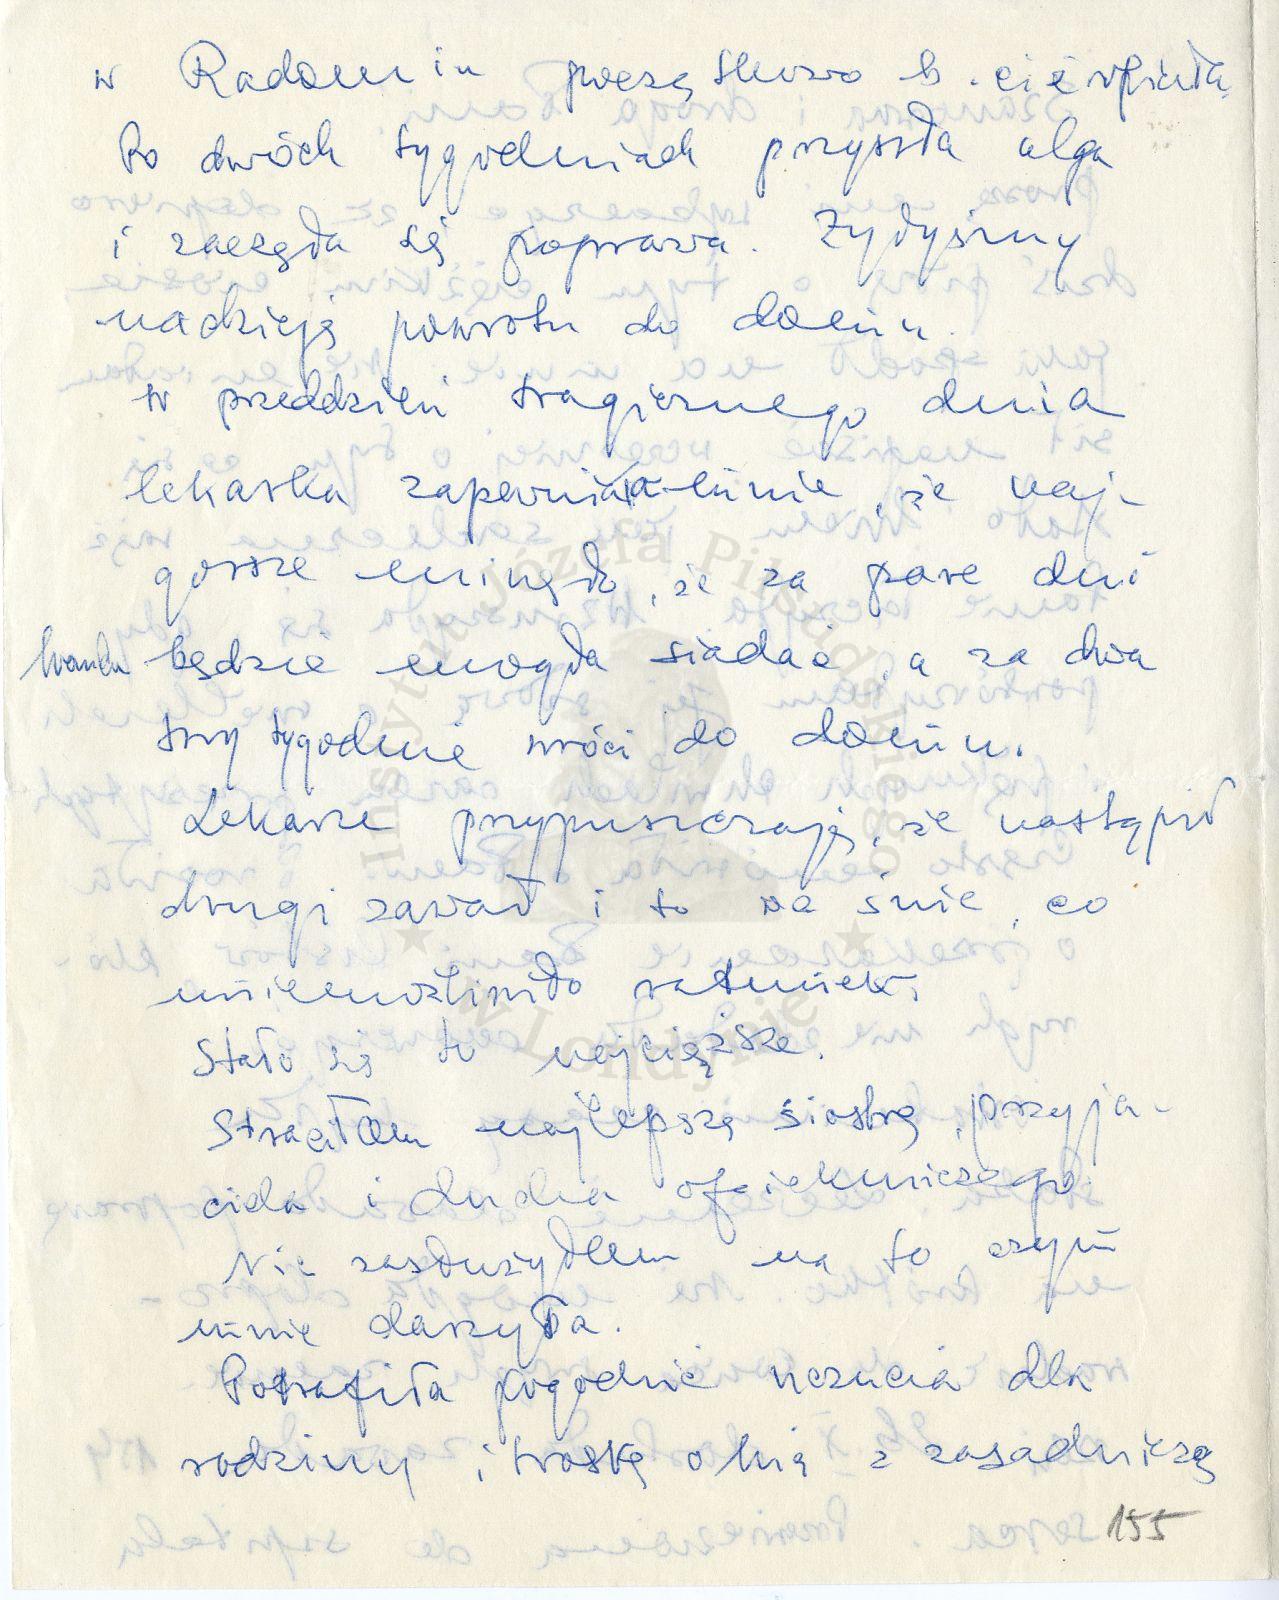 w Radomiu początkowo b. cierpiała.
Po dwóch tygodniach przyszła ulga
i zaczęła się poprawa. Żyłyśmy
nadzieją powrotu do domu.
W przeddzień tragicznego dnia
lekarka zapewniała mnie, że naj-
gorsze minęło, że za parę dni
Wanda będzie mogła siadać, a za dwa
trzy tygodnie wróci do domu.
Lekarze przypuszczają, że nastąpił
drugi zawał i to we śnie, co
uniemożliwiło ratunek.
Stało się to najcięższe.
Straciłam najlepszą siostrę, przyja-
ciela i ducha opiekuńczego.
Nie zasłużyłam na to czym
mnie darzyła.
Potrafiła pogodzić uczucia dla
rodziny i troskę o nią z zasadniczą
155
Instytut Józefa Piłsudskiego
w Londynie